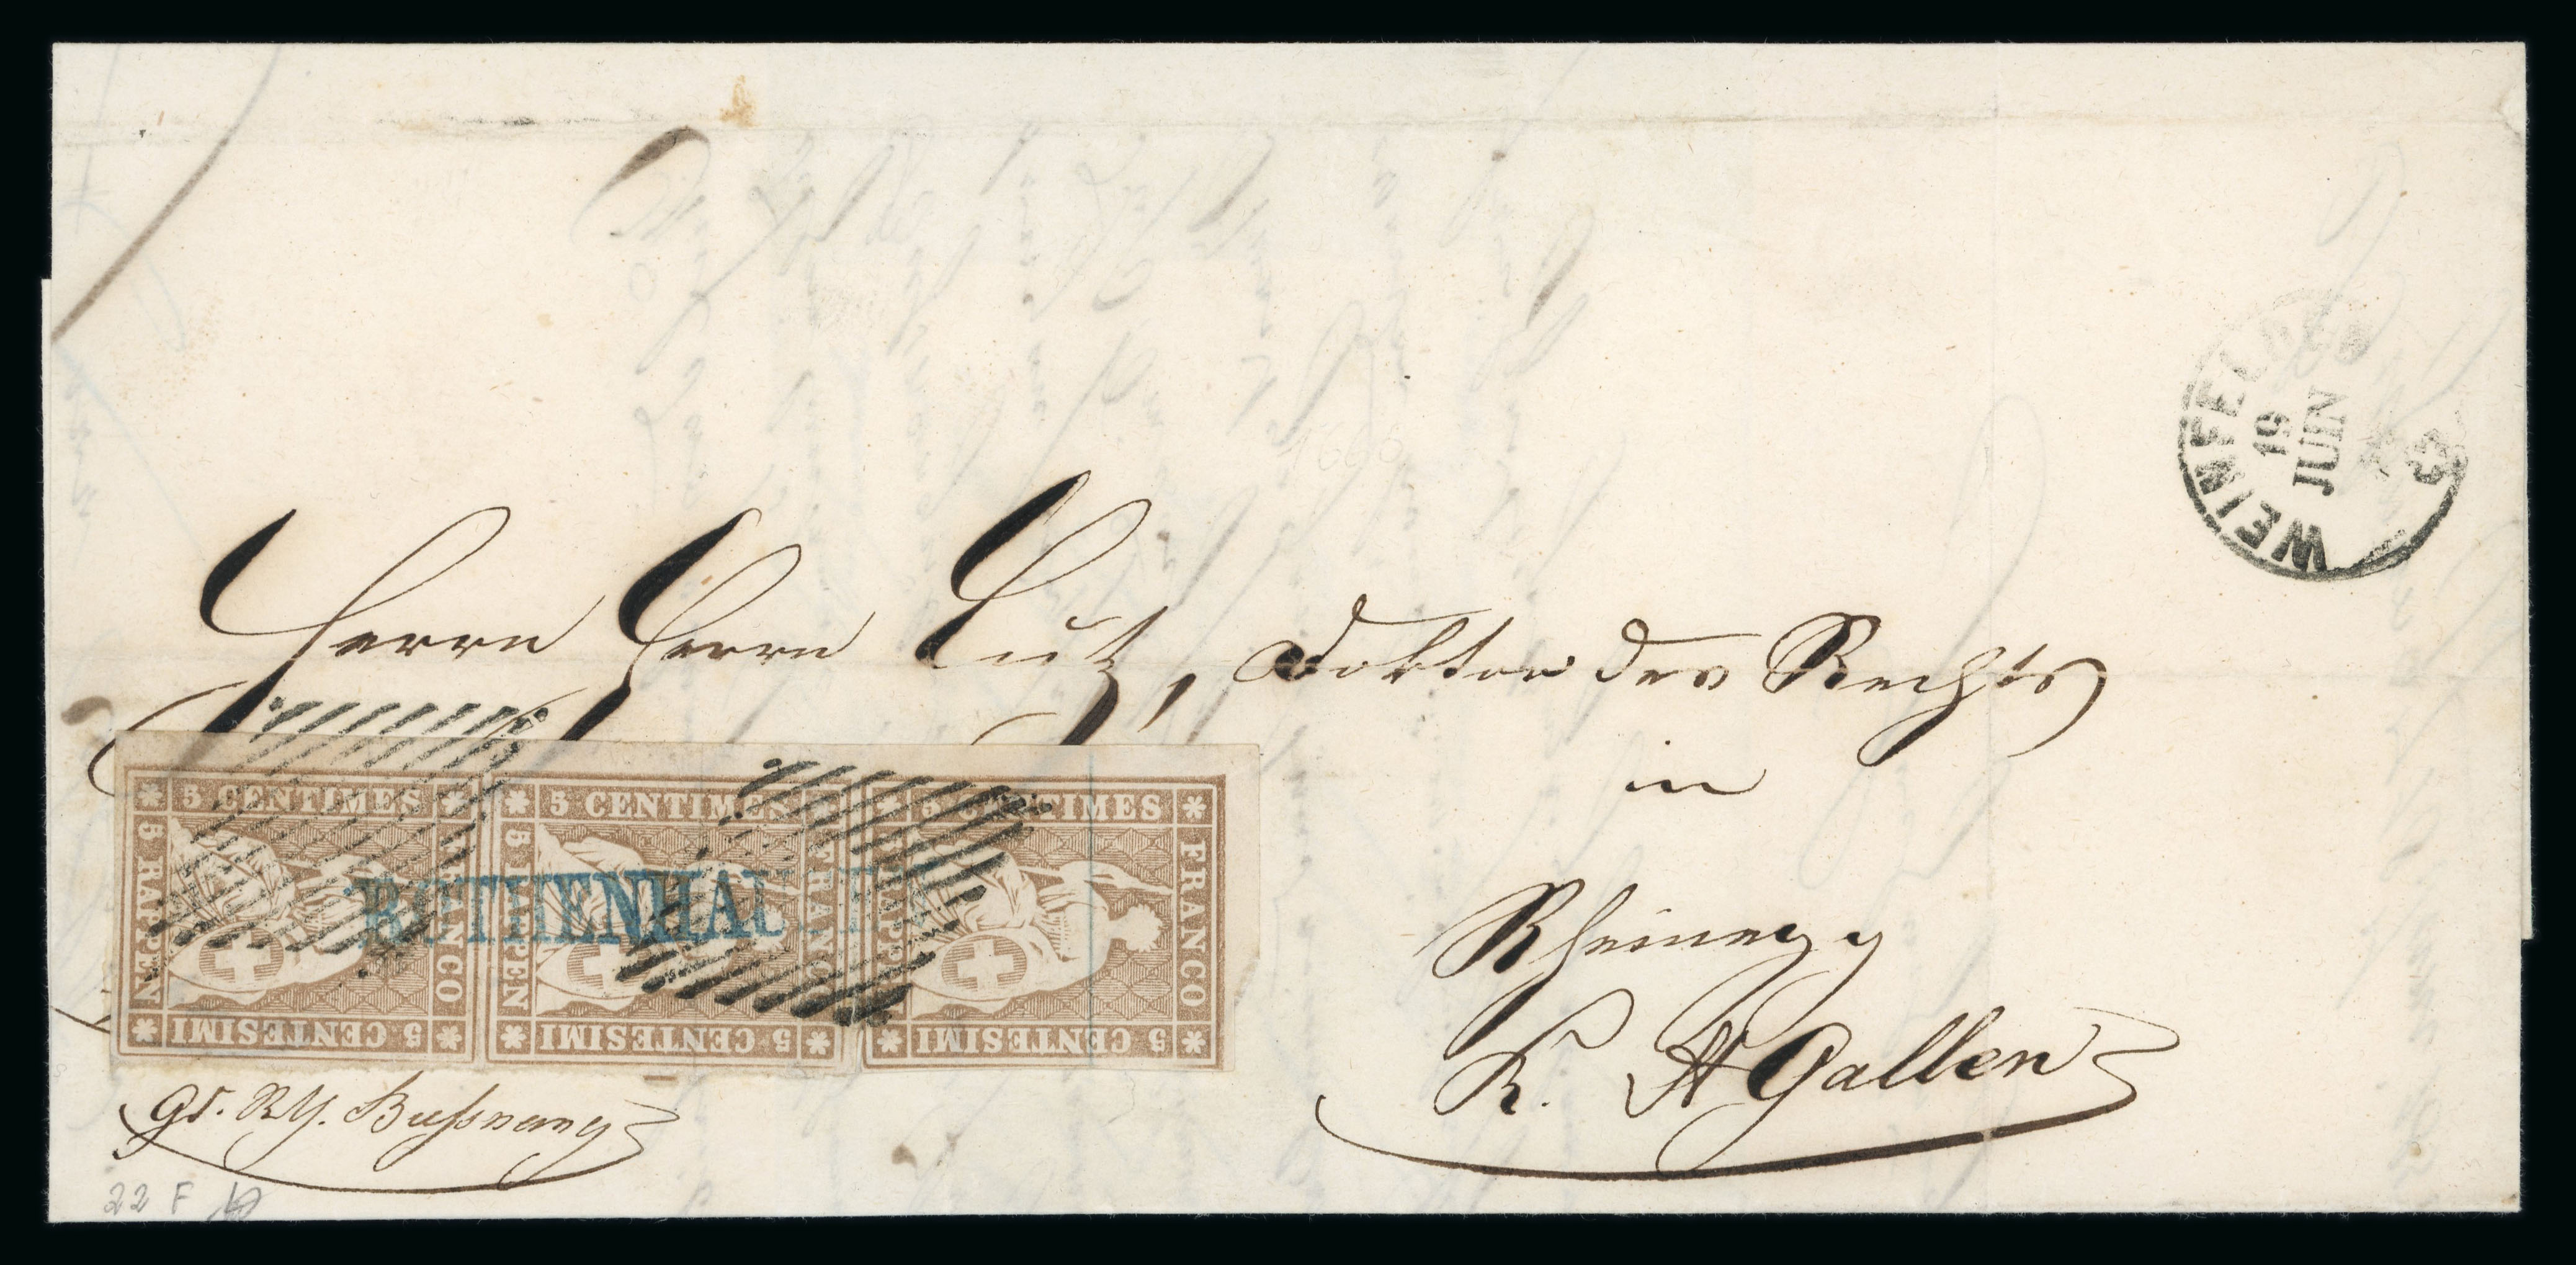 Herrn Herrn Lutz, Doktor des Rechts
in
Rheinegg
K. St Gallen
WEINFELDEN
19
JUIN
63
5 CENTIMES
5 RAPPEN
FRANCO
5 CENTESIMI
5 CENTIMES
5 RAPPEN
FRANCO
5 CENTESIMI
5 CENTIMES
5 RAPPEN
FRANCO
5 CENTESIMI
ROTHENHAUSEN
Bußnang
22 F